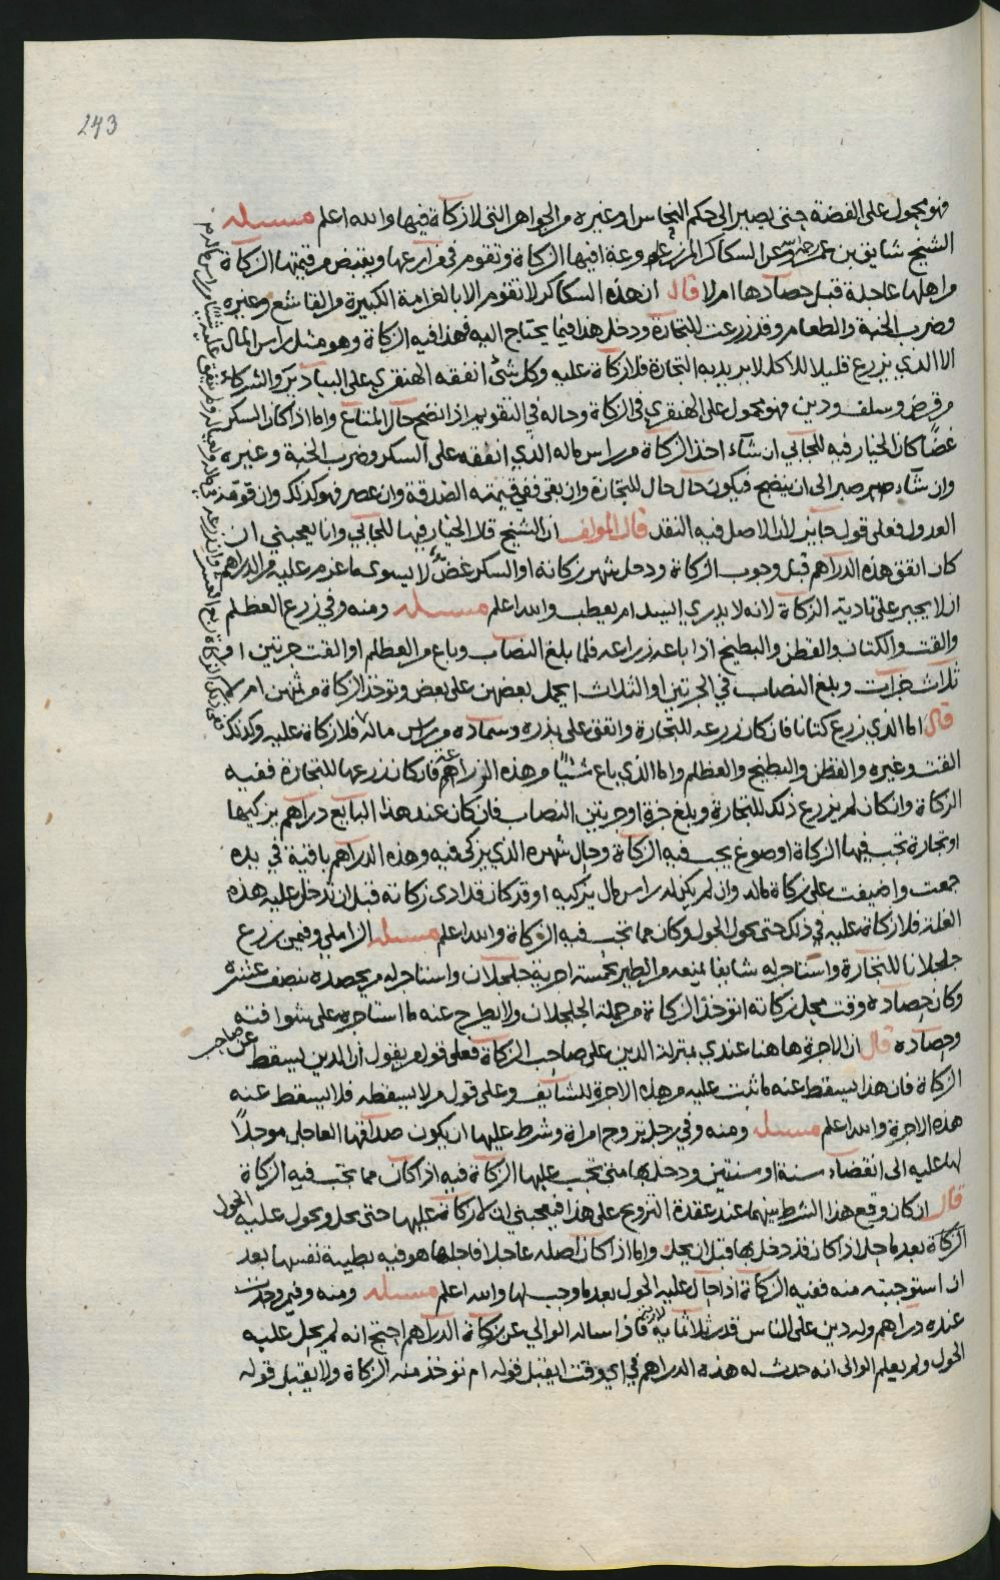 243
فهو محمول على الفضة حتى يصير الى حكم النحاس او غيره من الجواهر التي لا زكاة فيها والله اعلم مسئله
الشيخ شايق بن عمر عن السكاكر المزروعة افيها الزكاة وتقوم في مزارعها ويقبض من قيمتها الزكاة
من اهلها عاجلة قبل حصادها ام لا قال ان هذه السكاكر لا تقوم الا بالغرامة الكبيرة والقاشع وغيره
وضرب الخبة والطعام وقد زرعت للتجارة ودخل هذا فيما يحتاج اليه فهذا فيه الزكاة وهو مثل راس المال
الا الذي يزرع قليلا للاكل لا يريد به التجارة فلا زكاة عليه وكل شئ انفقه الهنقري على البيادير والشركاء
من قرض وسلف ودين فهو محمول على الهنقري في الزكاة وحاله في التقويم اذا نضج حال المتاع واما اذا كان السكر
غضا كان الخيار فيه للجابي ان شاء اخذ الزكاة من راس ماله الذي انفقه على السكر وضرب الخبة وغيره
وان شاء صبر الى ان ينضج فيكون حال حال للتجارة وان بقى ففي قيمته الصدقة وان عصر فهو كذلك وان قومه
العدول فعلى قول جايز لان الاصل فيه النقد قال المولف ان الشيخ قال الخيار فيها للجابي وانا يعجبني ان
كان انفق هذه الدراهم قبل وجوب الزكاة ودخل شهر زكاته والسكر غض لا يسوى ما غرم عليه من الدراهم
ان لا يجبر على تادية الزكاة لانه لا يدري ايسد ام يعطب والله اعلم مسئله ومنه وفي زرع العظلم
والقت والكتان والقطن والبطيخ اذا باعه زراعه فلما بلغ النصاب وباع من العظلم او القت جزتين او
ثلاث جزات وبلغ النصاب في الجزتين او الثلاث ايحمل بعضهن على بعض وتوخذ الزكاة من ثمنهن ام لا
قال اما الذي زرع كتانا فان كان زرعه للتجارة وانفق على بذره وسماده من راس ماله فلا زكاة عليه وكذلك
القت وغيره والقطن والبطيخ والعظلم واما الذي باع شيئا من هذه الزراعة فان كان زرعها للتجارة ففيه
الزكاة وان كان لم يزرع ذلك للتجارة وبلغ جزة او جزتين النصاب فان كان عند هذا البايع دراهم يزكيها
او تجارة تجب فيها الزكاة او صوغ يجب فيه الزكاة وحال شهره الذي يزكي فيه وهذه الدراهم باقية في يده
جمعت واضيفت على زكاة ماله وان لم يكن له راس مال يزكيه او قد كان قد ادى زكاته قبل ان تدخل عليه هذه
الغلة فلا زكاة عليه في ذلك حتى يحول الحول وكان مما تجب فيه الزكاة والله اعلم مسئله الزاملي وفيمن زرع
جلجلانا للتجارة واستاجر له شايفا لمنعه من الطير بخمسة اجرية جلجلان واستاجر له من يحصده بنصف عشره
وكان حصاده وقت محل زكاته اتوخذ الزكاة من جملة الجلجلان ولا يطرح عنه ما استاجره على شوافته
وحصاده قال ان الاجرة هاهنا عندي بمنزلة الدين على صاحب الزكاة فعلى قول من يقول ان الدين يسقط عن صاحب
الزكاة فان هذا يسقط عنه ما ثبت عليه من هذه الاجرة للشايف وعلى قول من لا يسقطه فلا يسقط عنه
هذه الاجرة والله اعلم مسئله ومنه وفي رجل تزوج امراة وشرط عليها ان يكون صداقها العاجل موجلا
لها عليه الى انقضاء سنة او سنتين ودخل بها متى تجب عليها الزكاة فيه اذا كان مما تجب فيه الزكاة
قال ان كان وقع هذا الشرط بينهما عند عقدة التزويج على هذا فيعجبني ان لا زكاة عليها حتى يحل ويحول عليه الحول
الزكاة بعد ما حل اذا كان قد دخل بها قبل ان يحل واما اذا كان اصله عاجلا فاجلها هو فيه بطيبة نفسها بعد
ان استوجبته منه ففيه الزكاة اذا حال عليه الحول بعد ما وجب لها والله اعلم مسئله ومنه وفيمن وجدت
عنده دراهم وله دين على الناس قدر ثلاثماية فاذا ساله الوالي عن زكاة الدراهم احتج انه لم يحل عليه
الحول ولم يعلم الوالى انه حدث له هذه الدراهم في اي وقت ايقبل قوله ام توخذ منه الزكاة ولا يقبل قوله